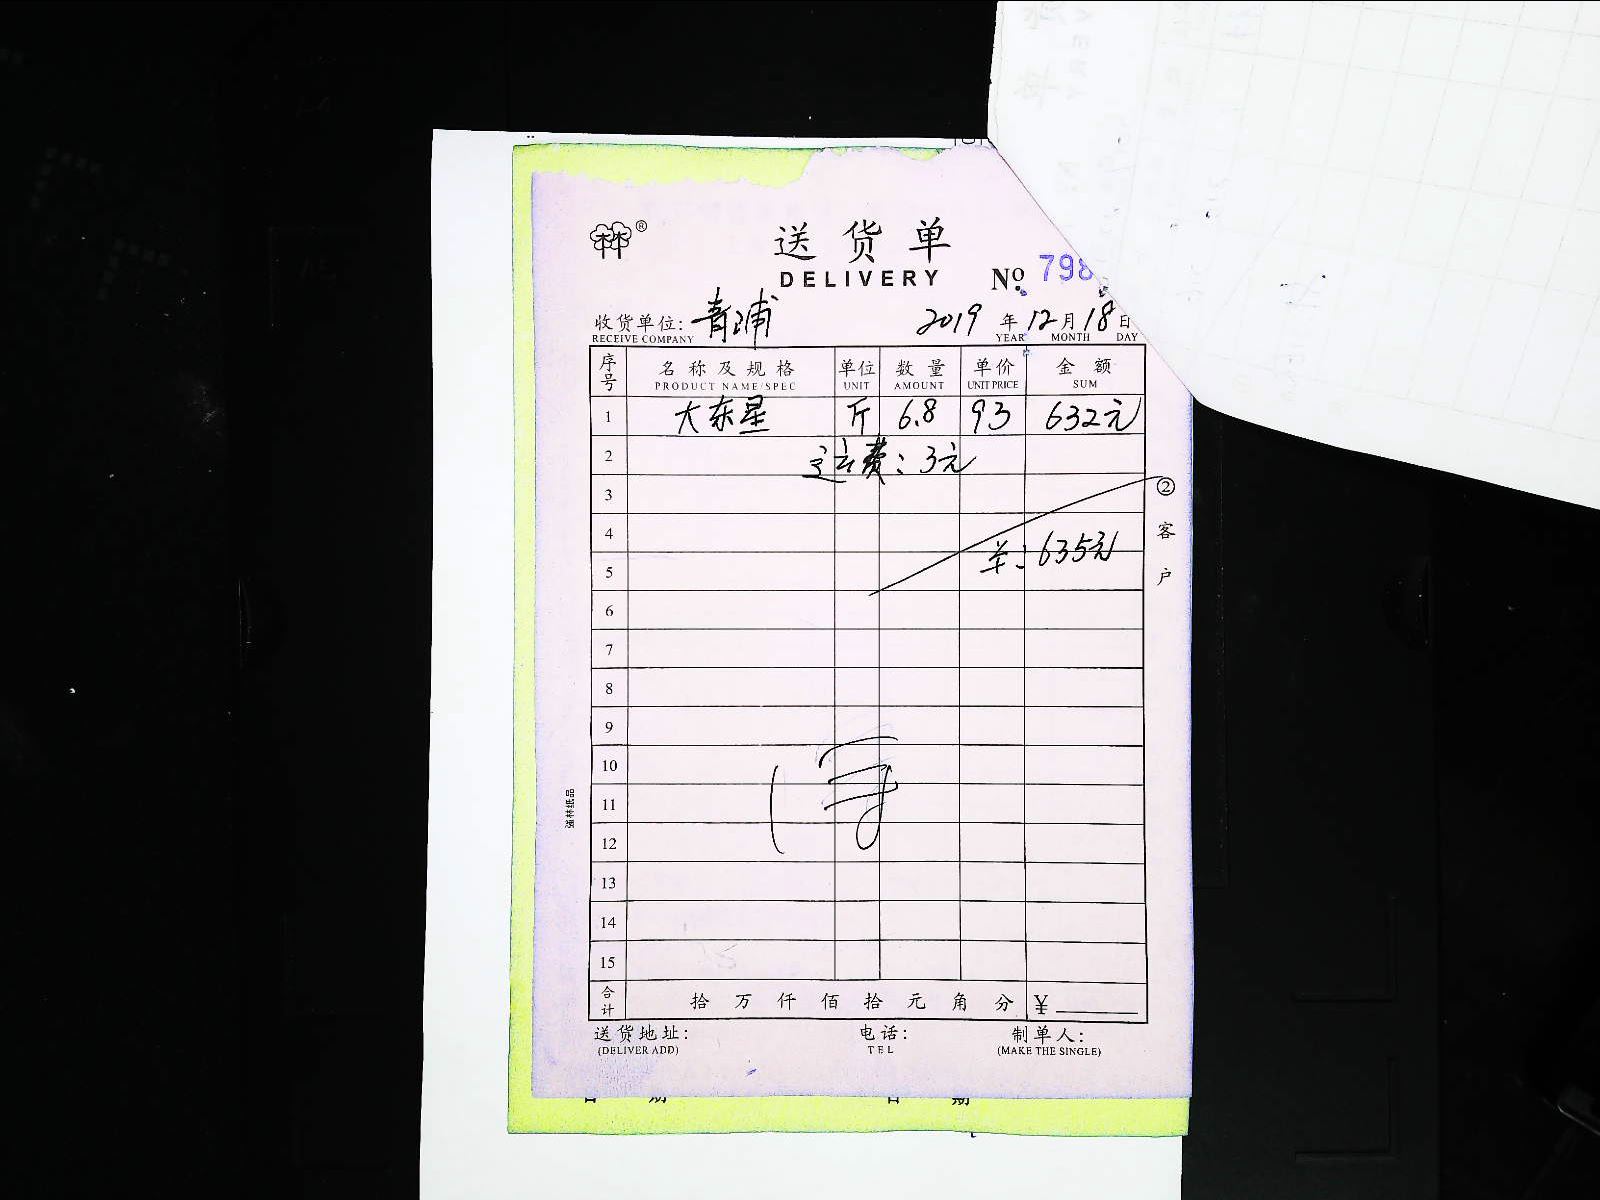 林®
送货单
DELIVERY
No 798
收货单位: 青浦 2019 年 12 月 18 日
RECEIVE COMPANY YEAR MONTH DAY
序号 名称及规格 单位 数量 单价 金额
PRODUCT NAME/SPEC UNIT AMOUNT UNIT PRICE SUM
1 大东星 斤 6.8 93 632元
2 运费: 3元
3
② 客户
4
635元
5
6
7
8
9
10
11
强林纸品
12
13
14
15
合计 拾 万 仟 佰 拾 元 角 分 ¥
送货地址: 电话: 制单人:
(DELIVER ADD) TEL (MAKE THE SINGLE)